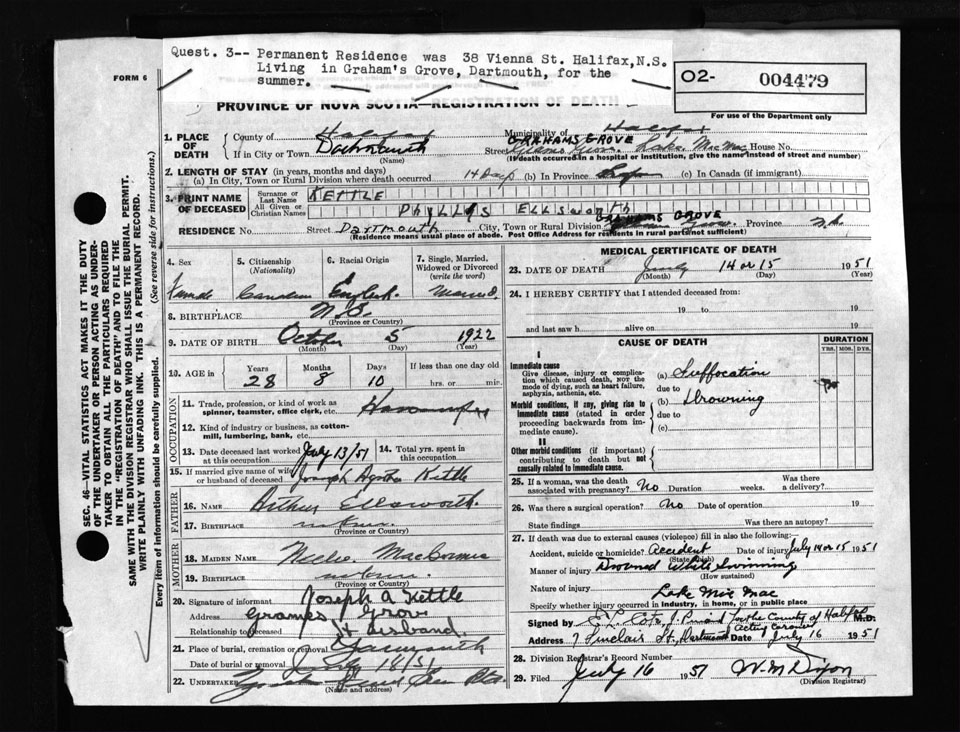 Quest. 3-- Permanent Residence was 38 Vienna St. Halifax, N.S.
Living in Graham's Grove, Dartmouth, for the
summer.
FORM 6
O2- 004479
For use of the Department only
PROVINCE OF NOVA SCOTIA—REGISTRATION OF DEATH
1. PLACE OF DEATH
County of Halifax Municipality of Halifax
If in City or Town Dartmouth (Name) Street GRAHAMS GROVE Lake Mic Mac House No.
(If death occurred in a hospital or institution, give the name instead of street and number)
2. LENGTH OF STAY (in years, months and days)
(a) In City, Town or Rural Division where death occurred 14 Days (b) In Province (c) In Canada (if immigrant)
3. PRINT NAME OF DECEASED
Surname or Last Name KETTLE
All Given or Christian Names Phyllis Ellsworth
RESIDENCE No. Street Dartmouth City, Town or Rural Division GRAHAMS GROVE Province N.S.
(Residence means usual place of abode. Post Office Address for residents in rural parts not sufficient)
4. Sex Female
5. Citizenship (Nationality) Canadian
6. Racial Origin English
7. Single, Married, Widowed or Divorced (write the word) Married
8. BIRTHPLACE N.S. (Province or Country)
9. DATE OF BIRTH October 5 1922
(Month) (Day) (Year)
10. AGE in Years 28 Months 8 Days 10 If less than one day old hrs. or min.
OCCUPATION
11. Trade, profession, or kind of work as spinner, teamster, office clerk, etc. Housewife
12. Kind of industry or business, as cotton-mill, lumbering, bank, etc.
13. Date deceased last worked at this occupation July 13/51
14. Total yrs. spent in this occupation
15. If married give name of wife or husband of deceased Joseph Kettle
FATHER
16. NAME Arthur Ellsworth
17. BIRTHPLACE (Province or Country)
MOTHER
18. MAIDEN NAME Nellie
19. BIRTHPLACE (Province or Country)
20. Signature of informant Joseph A Kettle
Address Grames Grove
Relationship to deceased Husband.
21. Place of burial, cremation or removal Dartmouth
Date of burial or removal July 18/51
22. UNDERTAKER
(Name and address)
MEDICAL CERTIFICATE OF DEATH
23. DATE OF DEATH July 14 or 15 1951
(Month) (Day) (Year)
24. I HEREBY CERTIFY that I attended deceased from:
19 to 19
and last saw h alive on 19
CAUSE OF DEATH
DURATION
YRS. MOS. DYS.
I
Immediate cause
Give disease, injury or complication which caused death, not the mode of dying, such as heart failure, asphyxia, asthenia, etc.
(a) Suffocation
due to
Morbid conditions, if any, giving rise to immediate cause (stated in order proceeding backwards from immediate cause).
(b) Drowning
due to
(c)
II
Other morbid conditions (if important) contributing to death but not causally related to immediate cause.
25. If a woman, was the death associated with pregnancy? No Duration weeks. Was there a delivery?
26. Was there a surgical operation? No Date of operation 19
State findings Was there an autopsy?
27. If death was due to external causes (violence) fill in also the following:—
Accident, suicide or homicide? Accident Date of injury July 14 or 15 1951
(State which)
Manner of injury Drowned While Swimming
(How sustained)
Nature of injury Lake Mic Mac
Specify whether injury occurred in industry, in home, or in public place
Signed by for the County of Halifax M.D.
Acting Coroner
Address 7 Sinclair St., Dartmouth Date July 16 1951
28. Division Registrar's Record Number
29. Filed July 16 1951 W. M. Dixon
(Division Registrar)
SEC. 46—VITAL STATISTICS ACT MAKES IT THE DUTY
OF THE UNDERTAKER OR PERSON ACTING AS UNDER-
TAKER TO OBTAIN ALL THE PARTICULARS REQUIRED
IN THE "REGISTRATION OF DEATH" AND TO FILE THE
SAME WITH THE DIVISION REGISTRAR WHO SHALL ISSUE THE BURIAL PERMIT.
WRITE PLAINLY WITH UNFADING INK. THIS IS A PERMANENT RECORD.
Every item of information should be carefully supplied. (See reverse side for instructions.)